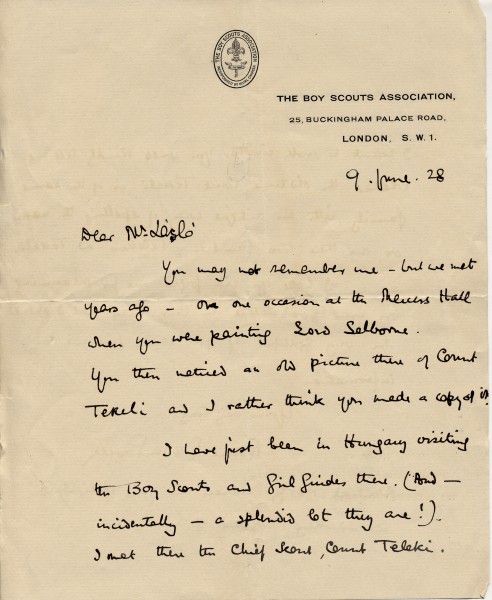 THE BOY SCOUTS ASSOCIATION
THE BOY SCOUTS ASSOCIATION,
25, BUCKINGHAM PALACE ROAD,
LONDON, S. W. 1.
9. June. 28
Dear Mr László
You may not remember me – but we met
years ago – on one occasion at the Mercers Hall
when you were painting Lord Selborne.
You then noticed an old picture there of Count
Tekeli and I rather think you made a copy of it.
I have just been in Hungary visiting
the Boy Scouts and Girl Guides there. (And –
incidentally – a splendid lot they are!).
I met there the Chief Scout, Count Teleki.